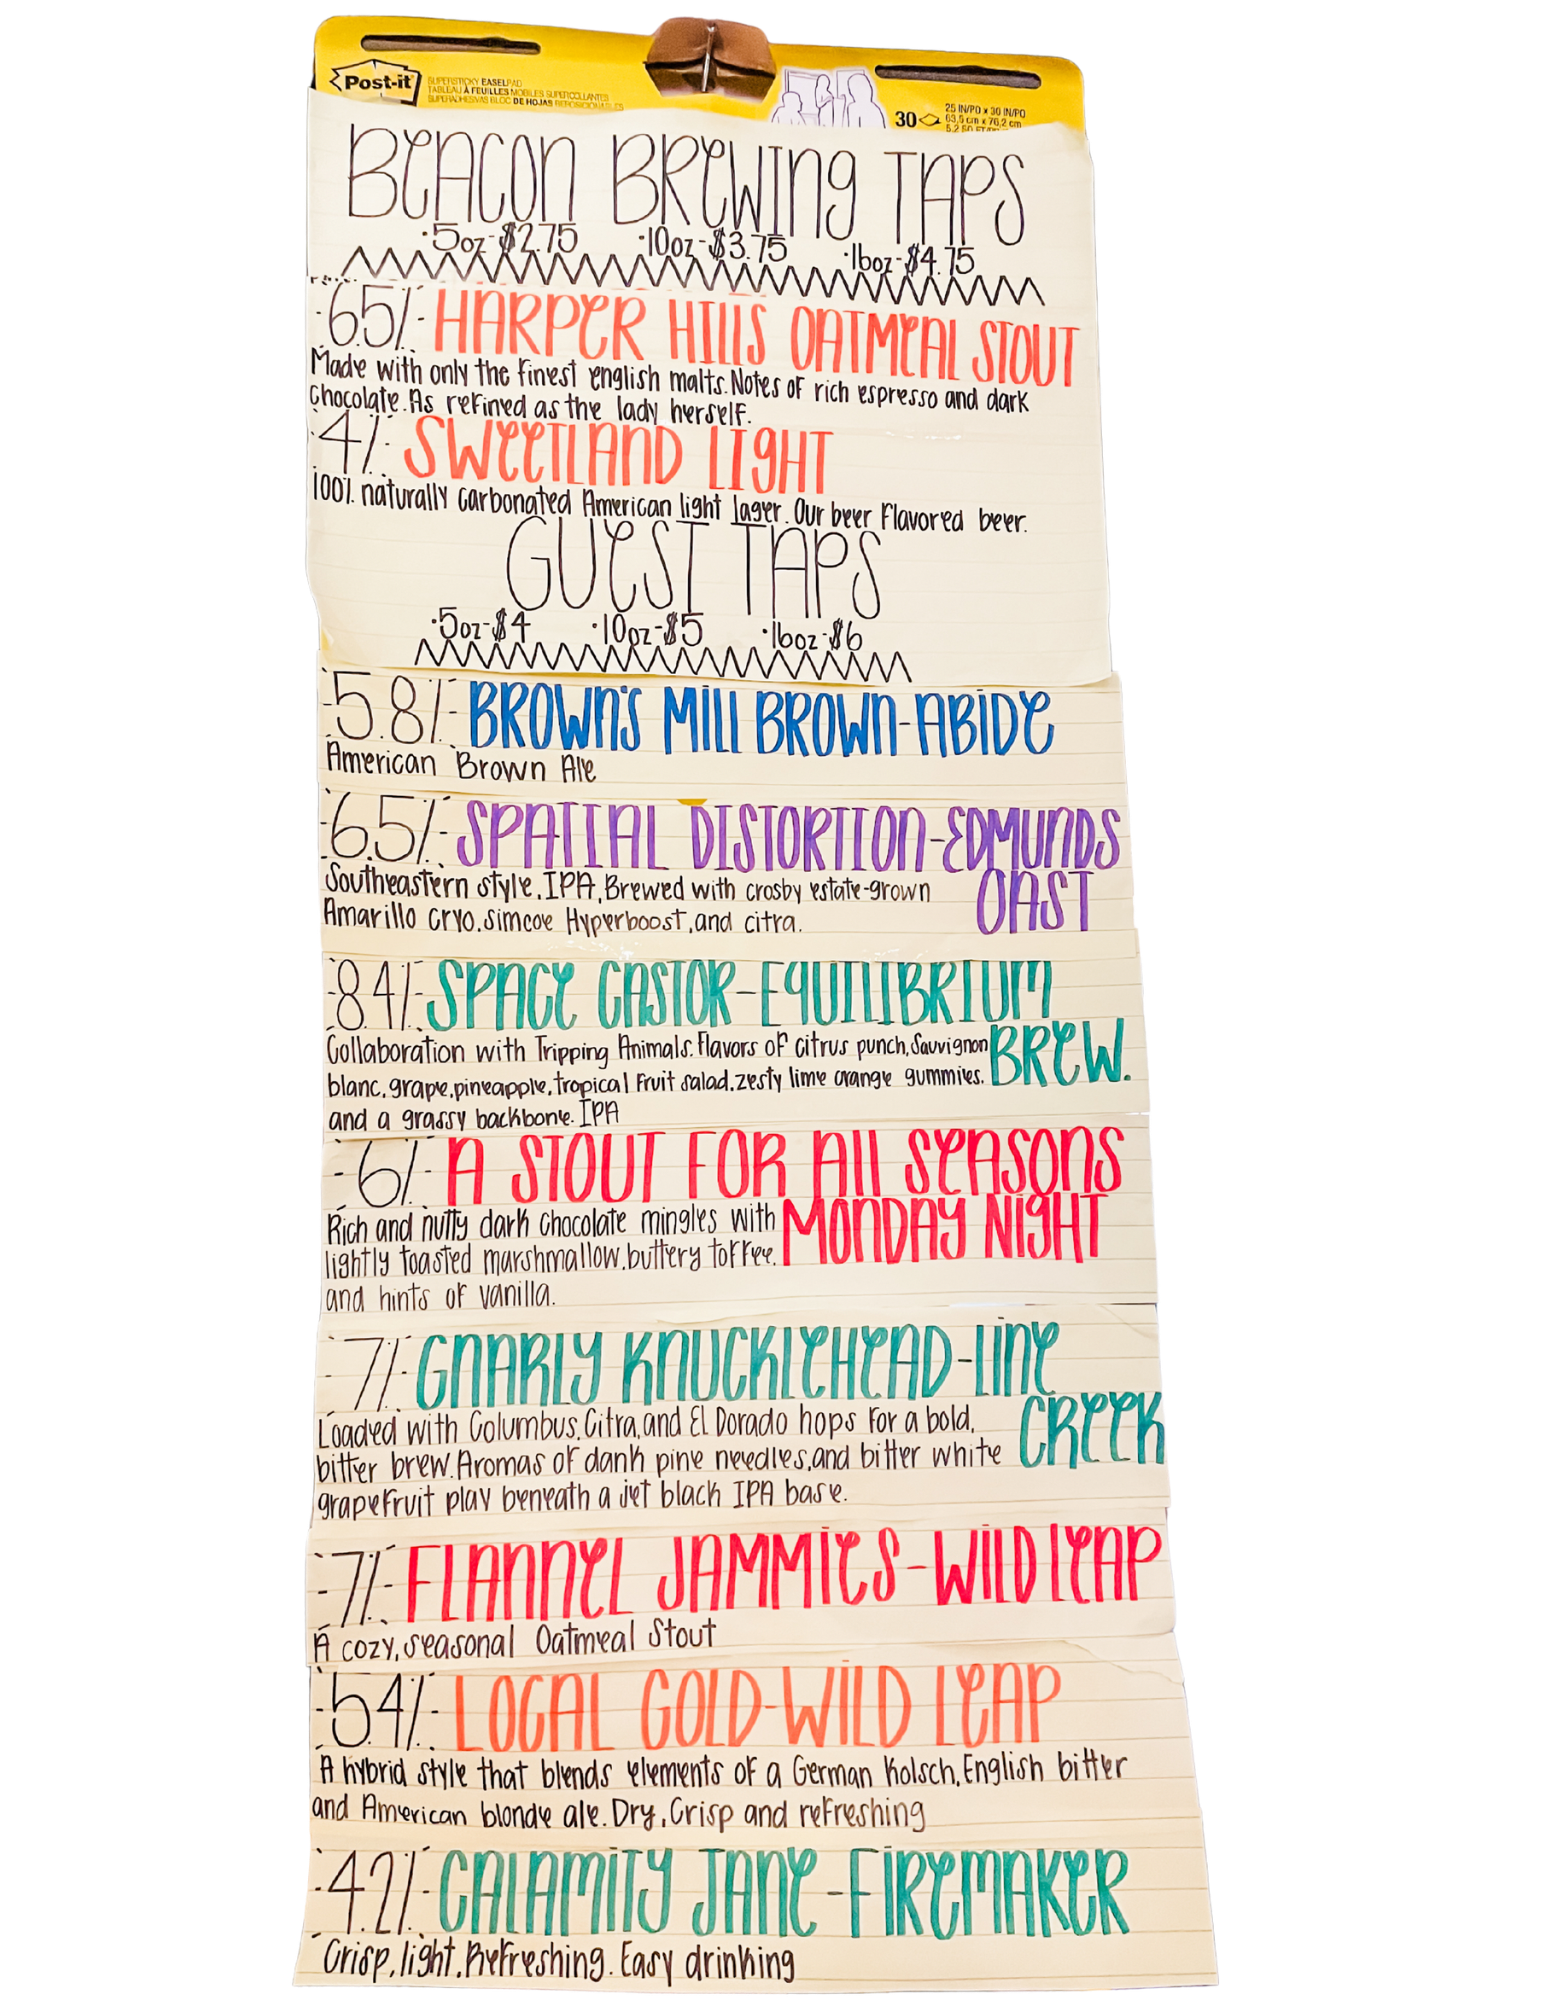 Post-it
SUPERSTICKY EASELPAD
TABLEAU À FEUILLES MOBILES SUPERCOLLANTES
SUPERADHESIVAS BLOC DE HOJAS REPOSICIONABLES
30
25 IN/PO x 30 IN/PO
63,5 cm x 76,2 cm
BEACON BREWING TAPS
·5oz-$2.75 ·10oz-$3.75 ·16oz-$4.75
-6.5%- HARPER HILLS OATMEAL STOUT
Made with only the finest english malts. Notes of rich espresso and dark
chocolate. As refined as the lady herself.
4% SWEETLAND LIGHT
100% naturally carbonated American light lager. Our beer flavored beer.
GUEST TAPS
·5oz-$4 ·10oz-$5 ·16oz-$6
-5.8%- BROWN'S MILL BROWN-ABIDE
American Brown Ale
-6.5%- SPATIAL DISTORTION-EDMUNDS
OAST
Southeastern style, IPA, Brewed with crosby estate-grown
Amarillo cryo, simcoe Hyperboost, and citra.
-8.4%- SPACE CASTOR-EQUILIBRIUM
BREW.
Collaboration with Tripping Animals. Flavors of citrus punch, Sauvignon
blanc, grape, pineapple, tropical fruit salad, zesty lime orange gummies,
and a grassy backbone. IPA
-6%- A STOUT FOR All SEASONS
MONDAY NIGHT
Rich and nutty dark chocolate mingles with
lightly toasted marshmallow, buttery toffee,
and hints of vanilla.
-7%- GNARLY KNUCKLEHEAD-LINE
CREEK
Loaded with Columbus, Citra, and El Dorado hops for a bold,
bitter brew. Aromas of dank pine needles, and bitter white
grapefruit play beneath a jet black IPA base.
-7%- FLANNEL JAMMIES-WILD LEAP
A cozy, seasonal Oatmeal Stout
-5.4%- LOCAL GOLD-WILD LEAP
A hybrid style that blends elements of a German Kolsch, English bitter
and American blonde ale. Dry, Crisp and refreshing
-4.2%- CALAMITY JANE-FIREMAKER
Crisp, light, Refreshing. Easy drinking